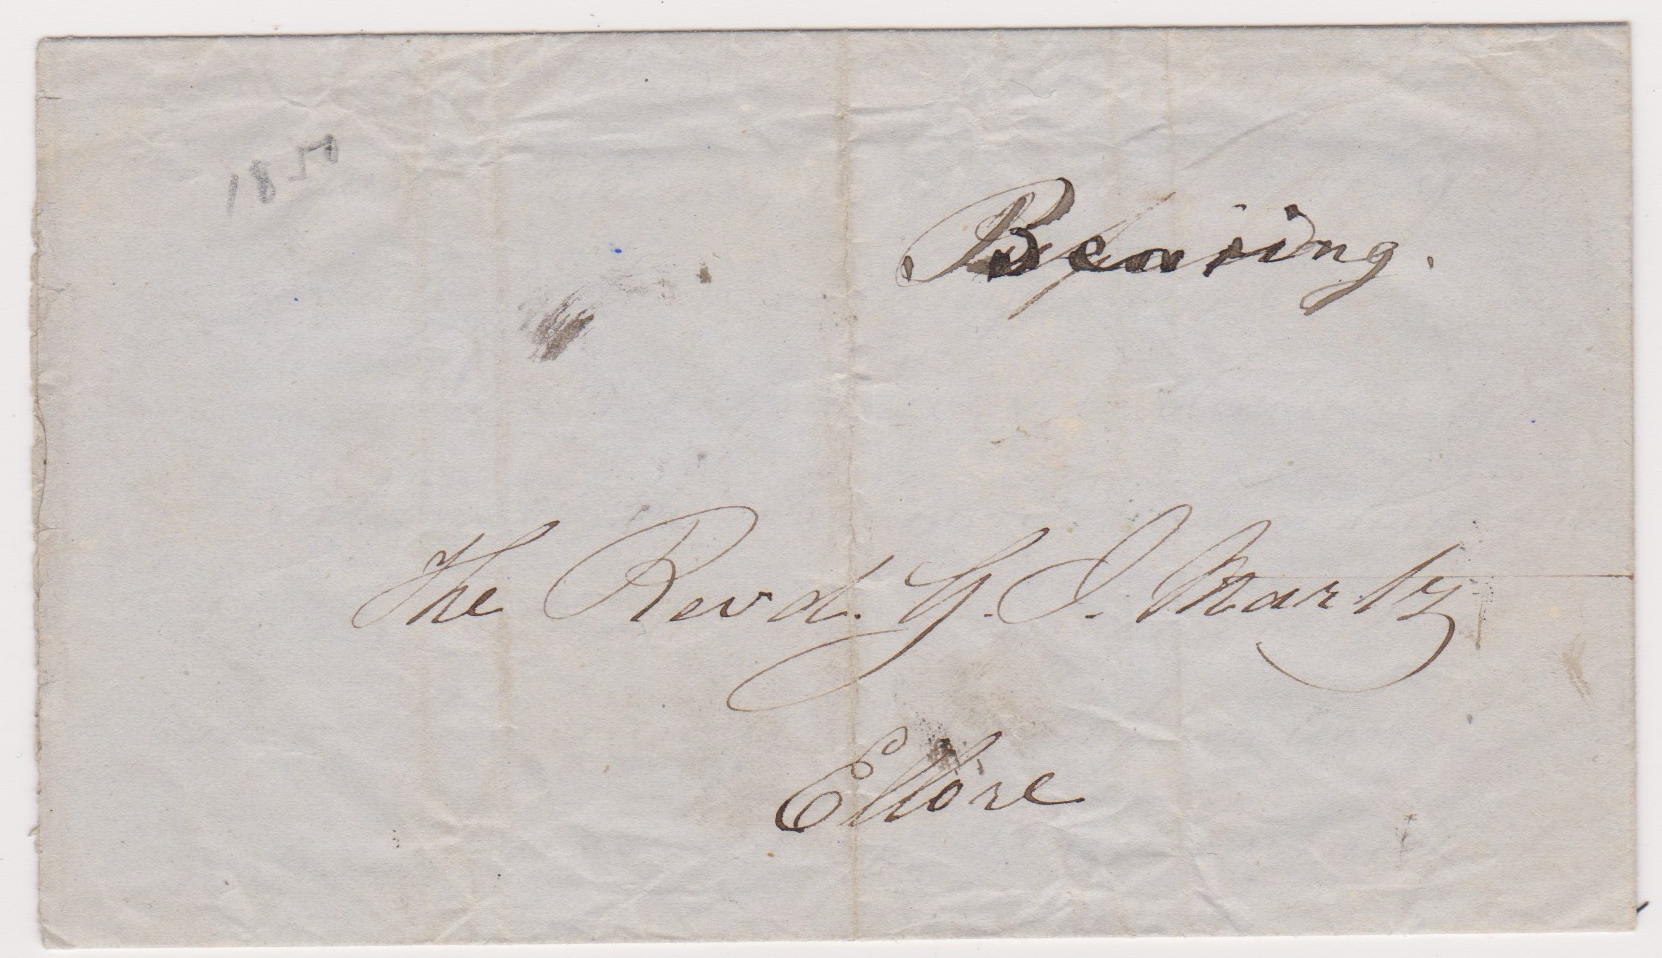 Bearing.
The Revd. G. I. Martz
Ellore